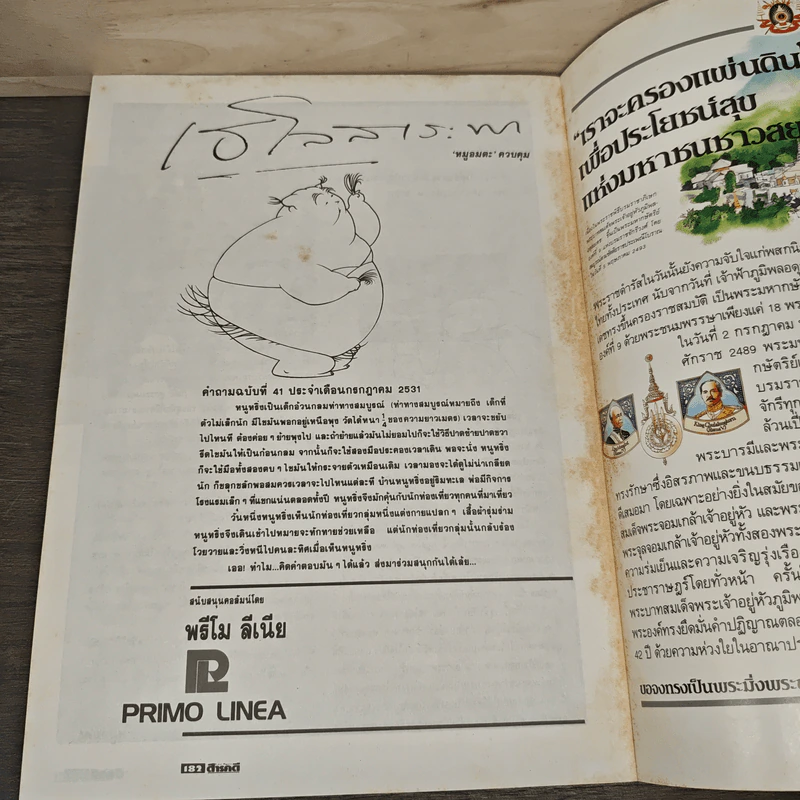 เฮโลสาระพา
'หมูอมตะ' ควบคุม
คำถามฉบับที่ 41 ประจำเดือนกรกฎาคม 2531
หนูหริ่งเป็นเด็กอ้วนกลมท่าทางสมบูรณ์ (ท่าทางสมบูรณ์หมายถึง เด็กที่
ตัวไม่เล็กนัก มีไขมันพอกอยู่เหนือพุง วัดได้หนา ¼ ของความยาวเมตร) เวลาจะขยับ
ไปไหนที ต้องค่อย ๆ ย้ายพุงไป และถ้าย้ายแล้วมันไม่ยอมไปก็จะใช้วิธีปาดซ้ายปาดขวา
รีดไขมันให้เป็นก้อนกลม จากนั้นก็จะใช้สองมือประคองเวลาเดิน พอจะนั่ง หนูหริ่ง
ก็จะใช้มือทั้งสองตบ ๆ ไขมันให้กระจายตัวเหมือนเดิม เวลามองจะได้ดูไม่น่าเกลียด
นัก ก็ขลุกขลักพอสมควรเวลาจะไปไหนแต่ละที บ้านหนูหริ่งอยู่ริมทะเล พ่อมีกิจการ
โรงแรมเล็ก ๆ ที่แขกแน่นตลอดทั้งปี หนูหริ่งจึงมักคุ้นกับนักท่องเที่ยวทุกคนที่มาเที่ยว
วันหนึ่งหนูหริ่งเห็นนักท่องเที่ยวกลุ่มหนึ่งแต่งกายแปลก ๆ เสื้อผ้ารุ่มร่าม
หนูหริ่งจึงเดินเข้าไปหมายจะทักทายช่วยเหลือ แต่นักท่องเที่ยวกลุ่มนั้นกลับร้อง
โวยวายและวิ่งหนีไปคนละทิศเมื่อเห็นหนูหริ่ง
เออ! ทำไม...คิดคำตอบมัน ๆ ได้แล้ว ส่งมาร่วมสนุกกันได้เลย...
สนับสนุนคอลัมน์โดย
พรีโม ลีเนีย
PRIMO LINEA
182 สารคดี
"เราจะครองแผ่นดิน
เพื่อประโยชน์สุข
แห่งมหาชนชาวสยาม
พระราชดำรัสในวันนั้นยังความจับใจแก่พสกนิ
ไทยทั้งประเทศ นับจากวันที่ เจ้าฟ้าภูมิพลอดุ
เดชทรงขึ้นครองราชสมบัติ เป็นพระมหากษั
องค์ที่ 9 ด้วยพระชนมพรรษาเพียงแค่ 18 พร
ในวันที่ 2 กรกฎาคม
ศักราช 2489 พระมห
กษัตริย์
บรมรา
จักรีทุก
ล้วนเปี่
King Chulalongkorn
พระบารมีและพระ
ทรงรักษาซึ่งอิสรภาพและขนบธรรมเ
ดีเสมอมา โดยเฉพาะอย่างยิ่งในสมัยขอ
สมเด็จพระจอมเกล้าเจ้าอยู่หัว และพระ
พระจุลจอมเกล้าเจ้าอยู่หัวทั้งสองพระ
ความร่มเย็นและความเจริญรุ่งเรือ
ประชาราษฎร์โดยทั่วหน้า ครั้น
พระบาทสมเด็จพระเจ้าอยู่หัวภูมิพ
พระองค์ทรงยึดมั่นคำปฏิญาณตลอ
42 ปี ด้วยความห่วงใยในอาณาป
ขอจงทรงเป็นพระมิ่งพระ